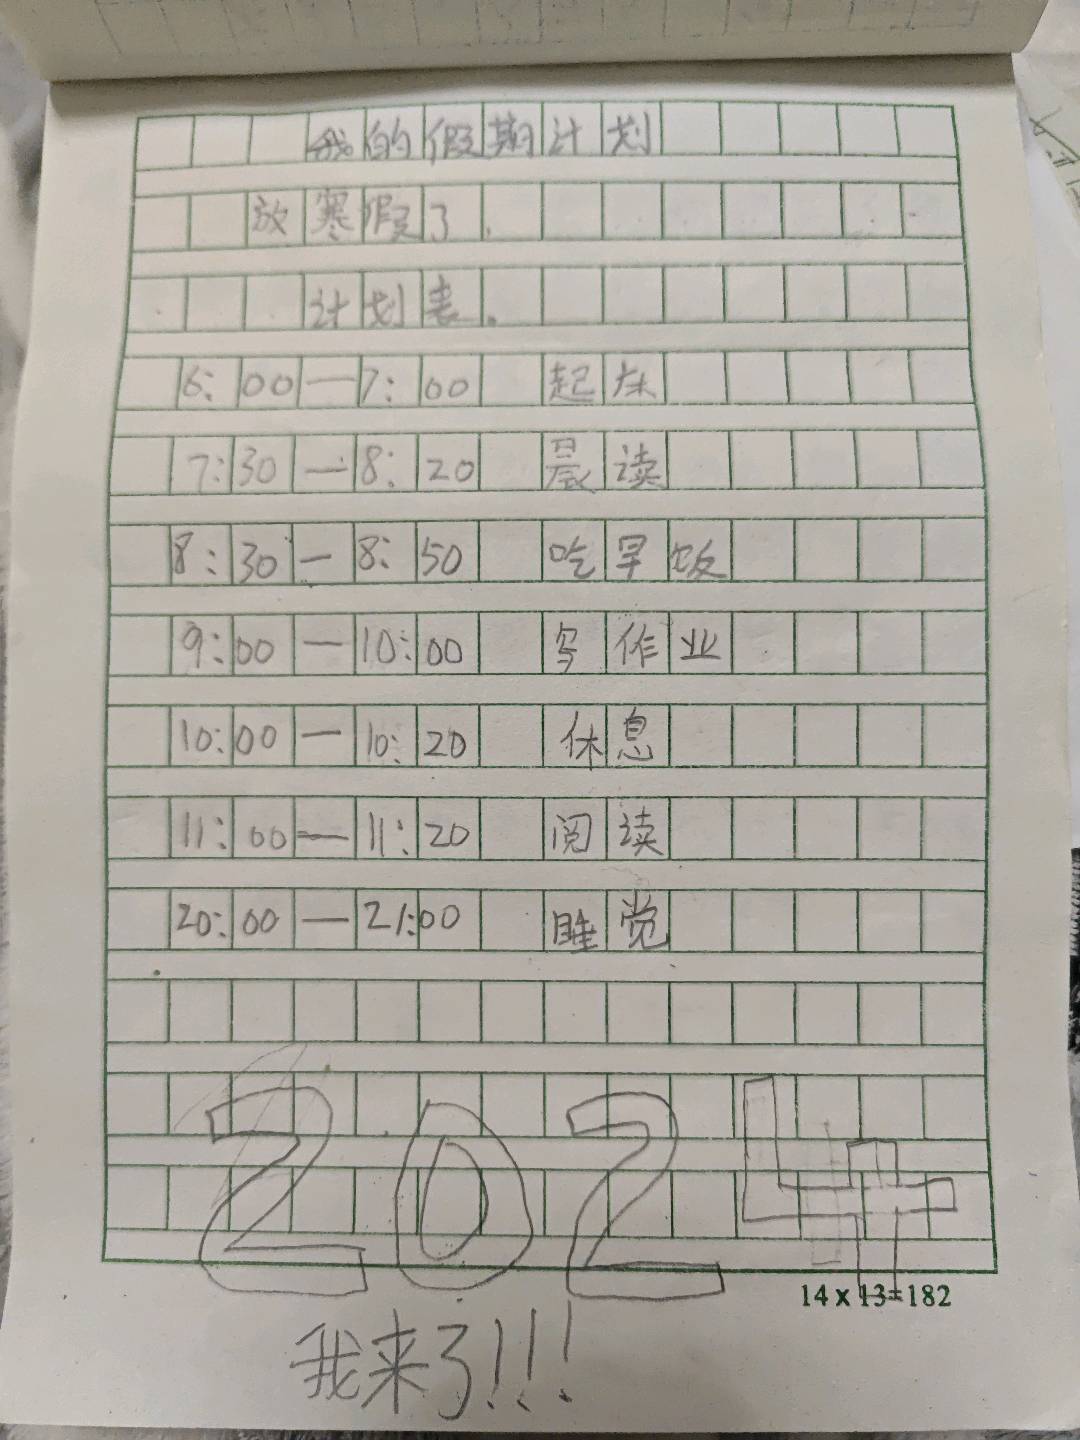 我的假期计划
放寒假了.
计划表.
6:00—7:00 起床
7:30—8:20 晨读
8:30—8:50 吃早饭
9:00—10:00 写作业
10:00—10:20 休息
11:00—11:20 阅读
20:00—21:00 睡觉
2024
14x13=182
我来了!!!